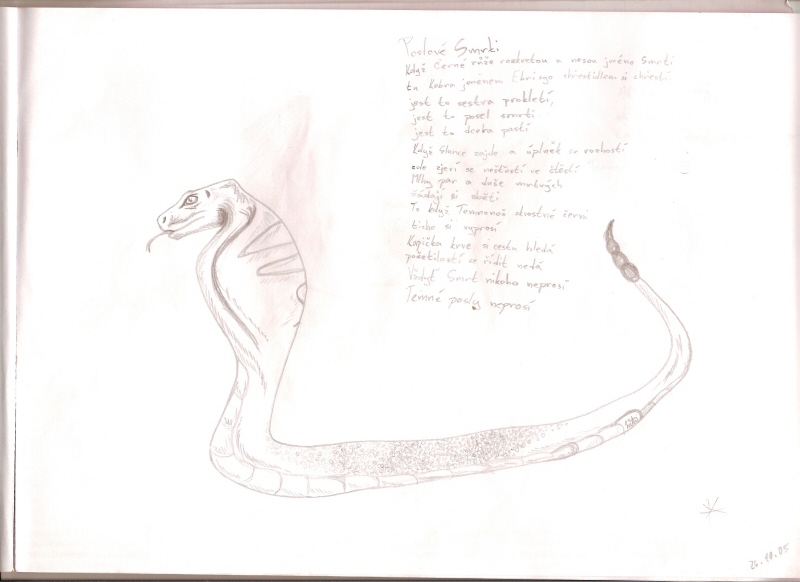 Poslové Smrti
Když černé růže rozkvetou a nesou jméno Smrti
tu Kobra jménem chřestidlem si chřestí
jest to sestra prokletí,
jest to posel smrti
jest to dcera pastí
Když Slunce zajde a úplněk se rozhostí
zde zjeví se neštěstí ve štěstí
Mlhy par a duše mrtvých
žádají si oběti
To když červi
tiše si vyprosí
Kapička krve si cestu hledá
početilostí se řídit nedá
Vždyť Smrt nikoho neprosí
Temné posly neprosí
26.10.05